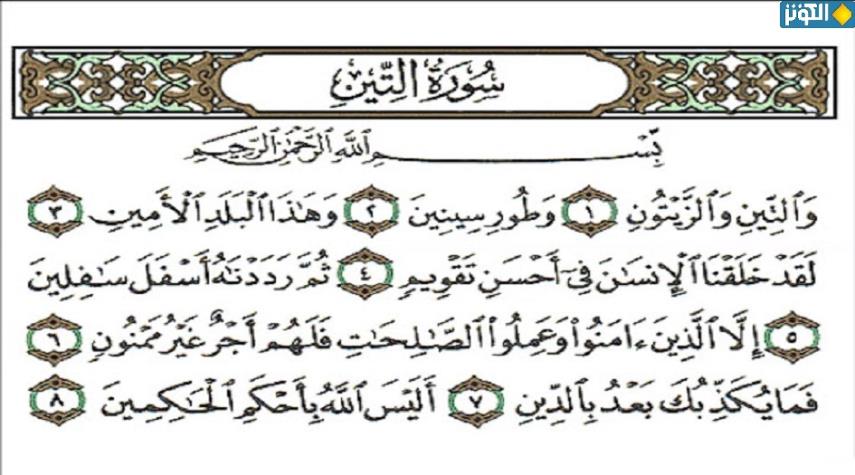 الكوثر
سُورَةُ التِّينِ
بِسْمِ ٱللَّهِ ٱلرَّحْمَٰنِ ٱلرَّحِيمِ
وَٱلتِّينِ وَٱلزَّيْتُونِ ١ وَطُورِ سِينِينَ ٢ وَهَٰذَا ٱلْبَلَدِ ٱلْأَمِينِ ٣
لَقَدْ خَلَقْنَا ٱلْإِنسَٰنَ فِىٓ أَحْسَنِ تَقْوِيمٍ ٤ ثُمَّ رَدَدْنَٰهُ أَسْفَلَ سَٰفِلِينَ
٥ إِلَّا ٱلَّذِينَ ءَامَنُوا۟ وَعَمِلُوا۟ ٱلصَّٰلِحَٰتِ فَلَهُمْ أَجْرٌ غَيْرُ مَمْنُونٍ ٦
فَمَا يُكَذِّبُكَ بَعْدُ بِٱلدِّينِ ٧ أَلَيْسَ ٱللَّهُ بِأَحْكَمِ ٱلْحَٰكِمِينَ ٨